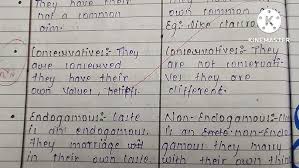 They have their
not a common
aim.
own common
Eg: like
Conservatives: They
are conserved
they have their
own values, beliefs.
Conservatives: They
are not conservati-
ves they are
different.
Endogamous: Caste
is an endogamous.
They marriage
in their own caste.
Non-Endogamous:
is an non-Endo-
gamous they marry
with their own
KINEMASTER